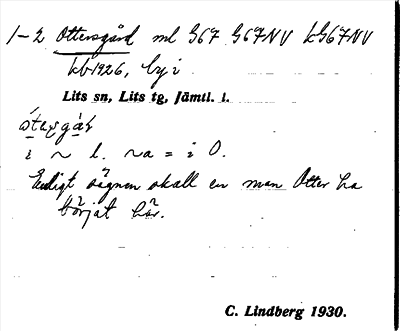 1-2 Ottersgård ml G67 G67NV kG67NV
kb1926, by i
Lits sn, Lits tg, Jämtl. l.
i ~ l. ~a = i O.
Enligt sägnen skall en man Otter ha
börjat här.
C. Lindberg 1930.